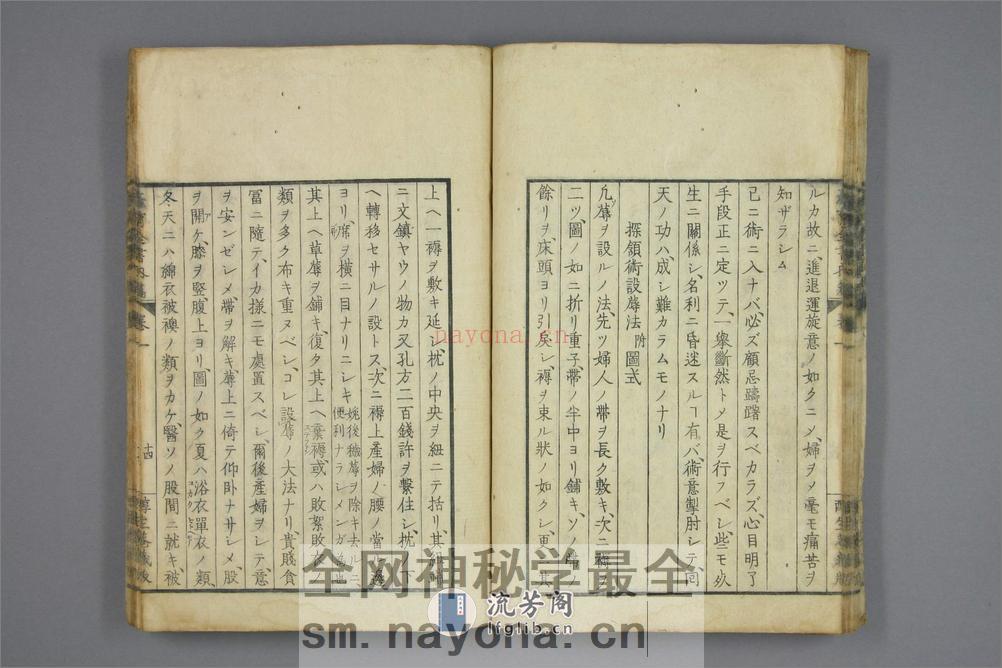 ルカ故ニ進退運旋意ノ如クニメ婦ヲメ毫モ痛苦ヲ
知ザラシム
已ニ術ニ入ナバ必ズ顧忌躊躇スベカラズ心目明了
手段正ニ定ツテ一擧斷然トメ是ヲ行フベシ些モ
生ニ關係シ名利ニ昏迷スルヿ有バ術意掣肘シテ回
天ノ功ハ成シ難カラムモノナリ
探領術設蓐法 附圖式
凢蓐ヲ設ルノ法先ツ婦人ノ帶ヲ長ク敷キ次ニ
二ツ圖ノ如ニ折リ重子帶ノ半中ヨリ鋪キソノ帶
餘リヲ床頭ヨリ引戻シ褥ヲ束ル狀ノ如クシ更ニ其
上ヘ一褥ヲ敷キ延シ枕ノ中央ヲ紐ニテ括リ其紐
ニ文鎮ヤウノ物カ又孔方二百錢許ヲ繋住シ枕ノ下
ヘ轉移セサルノ設トス次ニ褥上產婦ノ腰ノ當ル邊
ヨリ席ヲ橫ニ目ナリニシキ 娩後穢蓐ヲ除キ去ルニ便利ナラシメンガ爲也
其上ヘ草蓐ヲ鋪キ復タ其上ヘ藁褥或ハ敗絮敗衣
類ヲ多ク布キ重ヌベシコレ設蓐ノ大法ナリ貴賤貧
冨ニ隨テイカ樣ニモ處置スベシ爾後產婦ヲシテ意
ヲ安ンゼシメ帶ヲ解キ蓐上ニ倚テ仰臥ナサシメ股
ヲ開ケ膝ヲ竪腹上ヨリ圖ノ如ク夏ハ浴衣單衣ノ類
冬天ニハ綿衣被襖ノ類ヲカケ醫ソノ股間ニ就キ被
十四
nayona.cn
全网神秘学最全
流芳阁
lfglib.cn
sm.nayona.cn